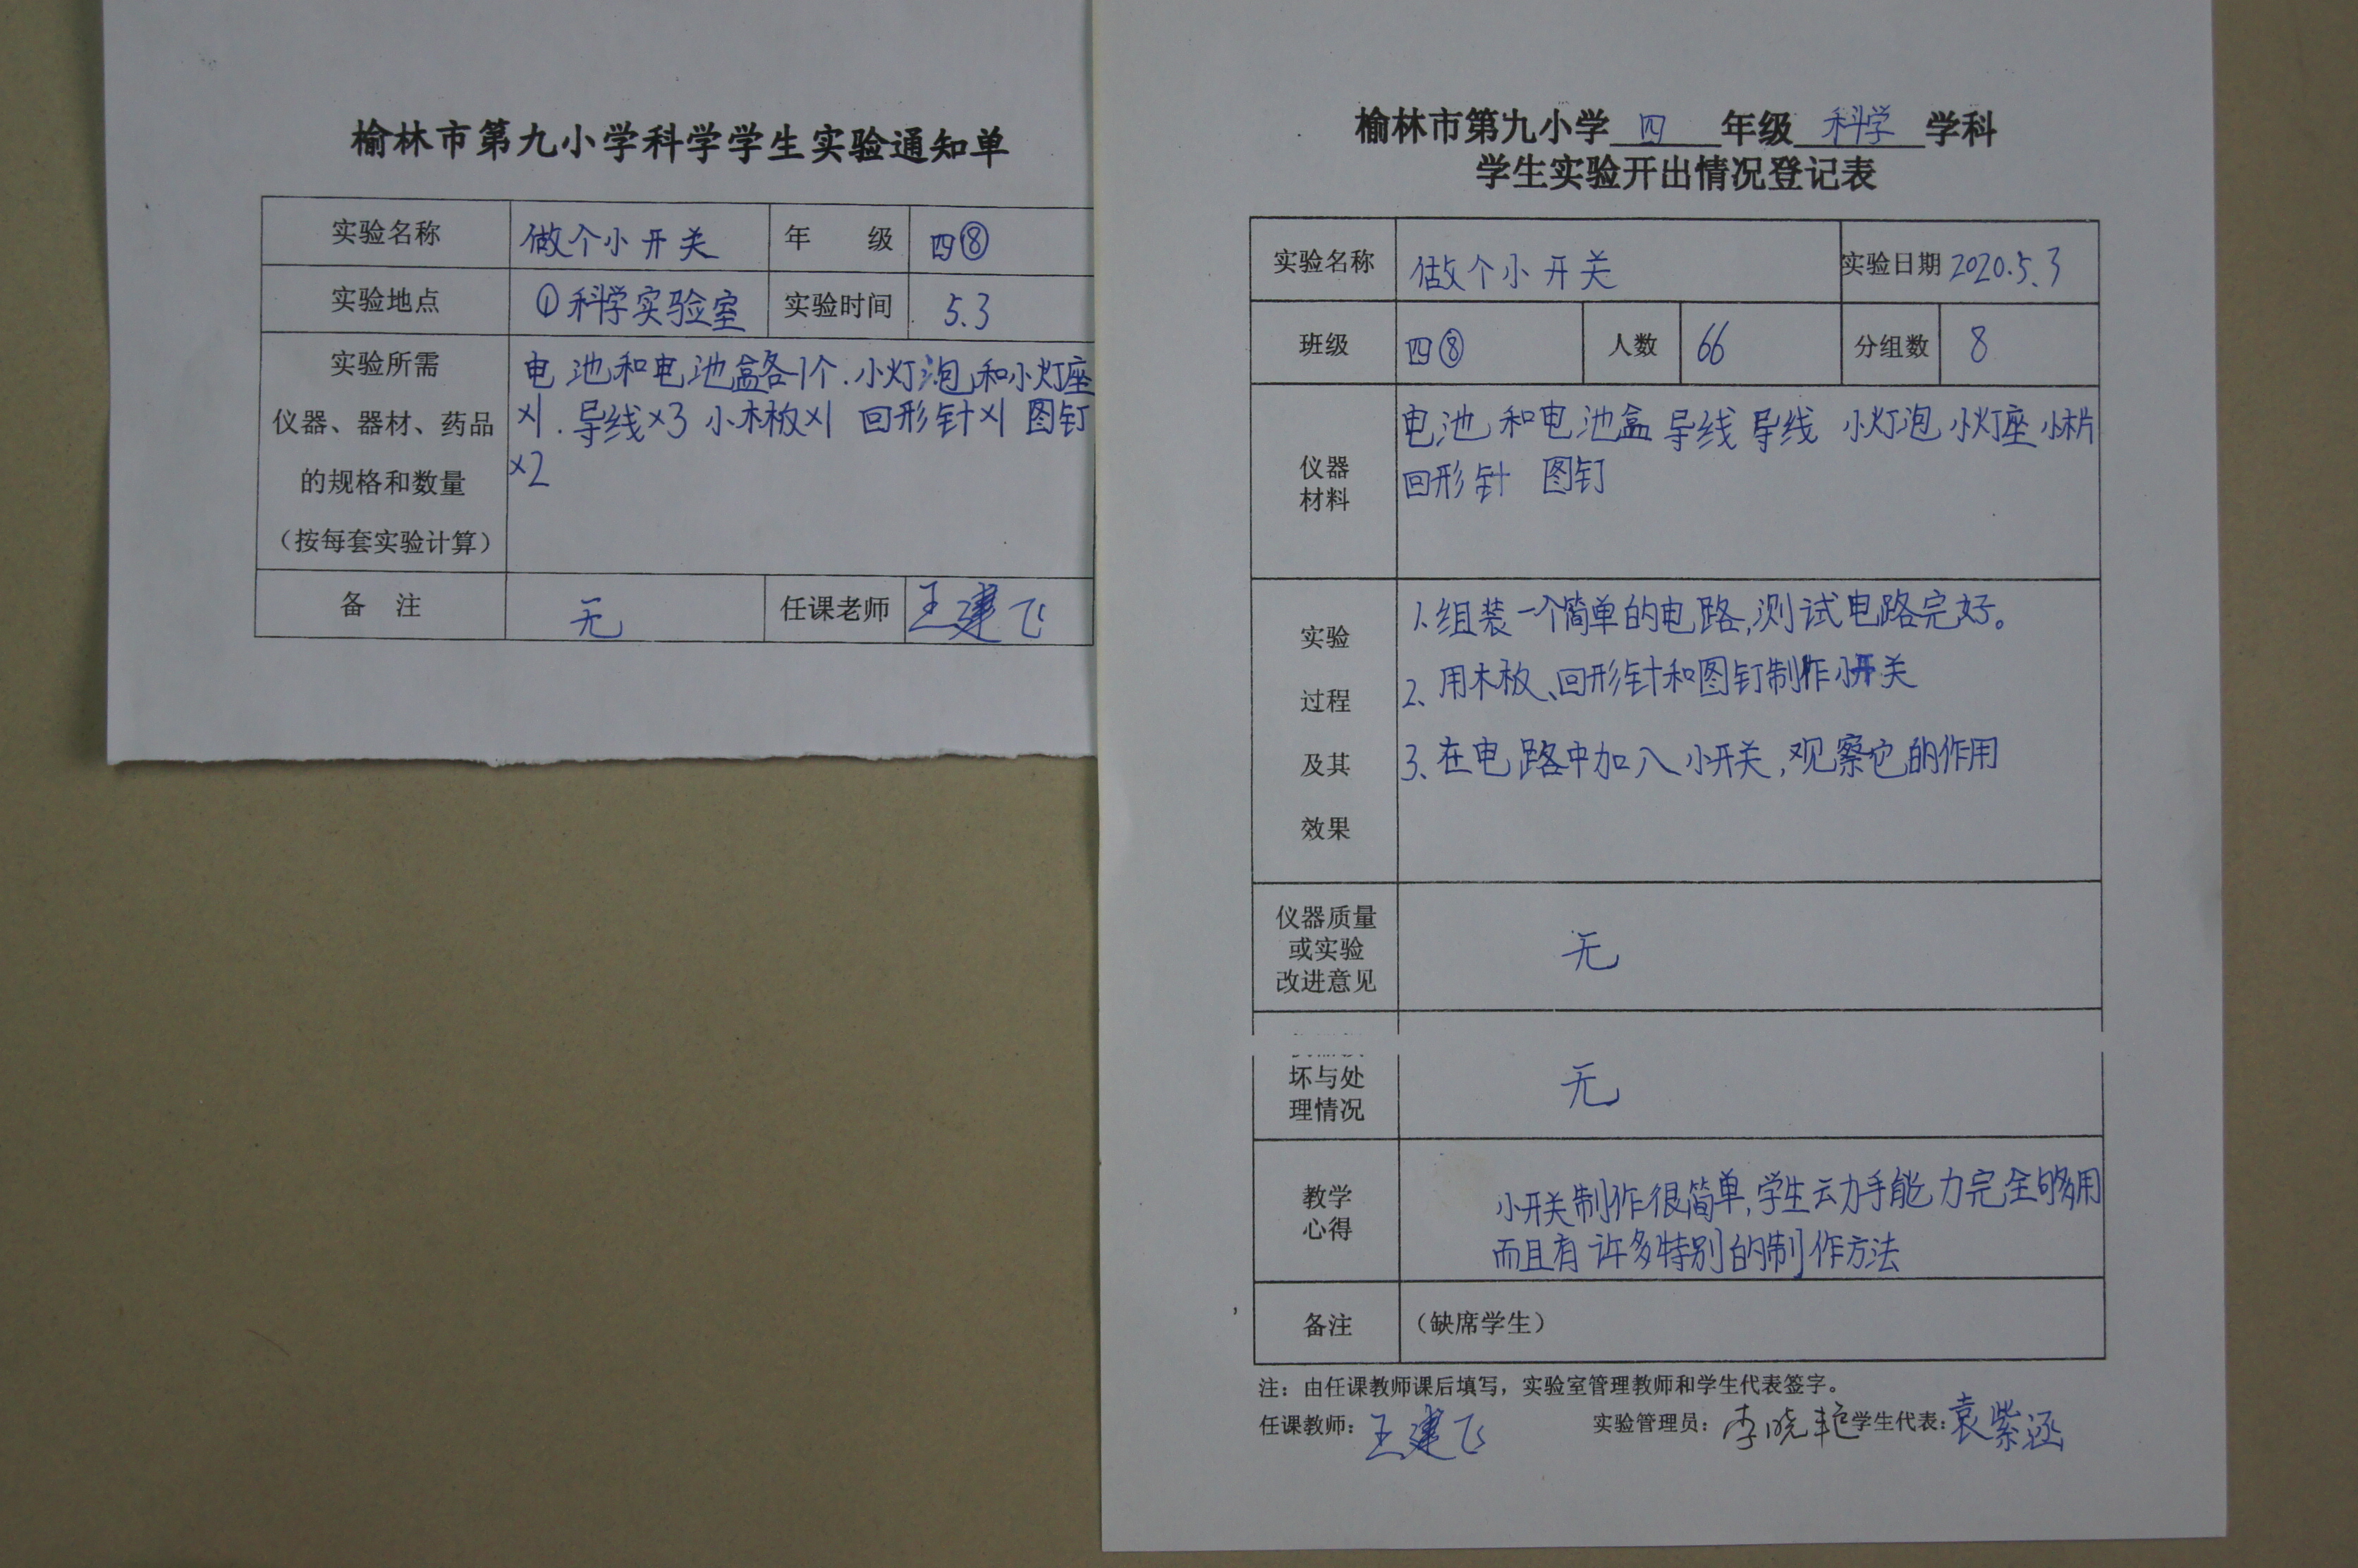 榆林市第九小学科学学生实验通知单
实验名称 做个小开关 年 级 四⑧
实验地点 ①科学实验室 实验时间 5.3
实验所需
仪器、器材、药品
的规格和数量
（按每套实验计算）
电池和电池盒各1个.小灯泡和小灯座
×1.导线×3 小木板×1 回形针×1 图钉
×2
备 注 无 任课老师 王建飞
榆林市第九小学 四 年级 科学 学科
学生实验开出情况登记表
实验名称 做个小开关 实验日期 2020.5.3
班级 四⑧ 人数 66 分组数 8
仪器
材料
电池和电池盒 导线 导线 小灯泡 小灯座 小木片
回形针 图钉
实验
过程
及其
效果
1.组装一个简单的电路,测试电路完好。
2、用木板、回形针和图钉制作小开关
3、在电路中加入小开关,观察它的作用
仪器质量
或实验
改进意见
无
坏与处
理情况
无
教学
心得
小开关制作很简单,学生动手能力完全够用
而且有许多特别的制作方法
备注 （缺席学生）
注：由任课教师课后填写，实验室管理教师和学生代表签字。
任课教师：王建飞 实验管理员：李晓艳 学生代表：袁紫涵